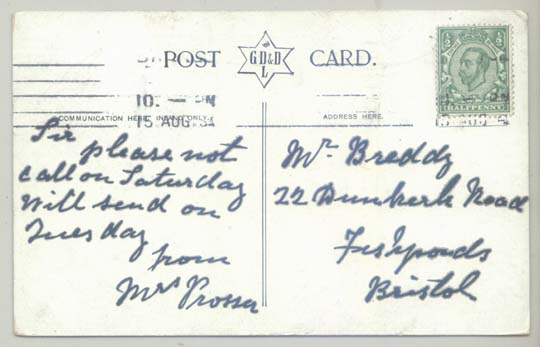 POST CARD.
G.D.&D.
L
HALFPENNY
10. — PM
15 AUG 34
COMMUNICATION HERE. INLAND ONLY.
ADDRESS HERE.
Sir
please not
call on Saturday
Will send on
Tuesday
from
Mrs Prosser
Mr Breddy
22 Dunkerk Road
Fishponds
Bristol